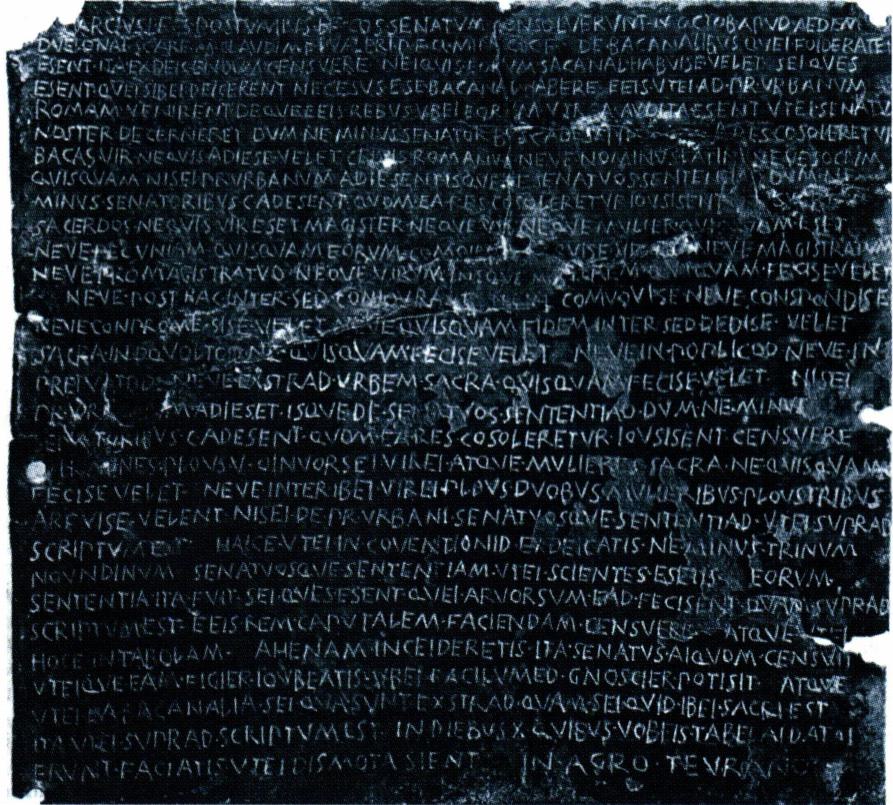 MARCIVS L F S POSTVMIVS L F COS SENATVM CONSOLVERVNT N OCTOB APVD AEDEM
DVELONAI SC ARF M CLAVDI M F L VALERI P F Q MINVCI C F DE BACANALIBVS QVEI FOIDERATEI
ESENT ITA EXDEICENDVM CENSVERE NEIQVIS EORVM SACANAL HABVISE VELET SEI QVES
ESENT QVEI SIBEI DEICERENT NECESVS ESE BACANAL HABERE EEIS VTEI AD PR VRBANVM
ROMAM VENIRENT DEQVE EEIS REBVS VBEI EORVM VTR A AVDITA ESENT VTEI SENATVS
NOSTER DECERNERET DVM NE MINVS SENATORBVS C ADESENT RES COSOLERETVR
BACAS VIR NEQVIS ADIESE VELET CEIVIS ROMANVS NEVE NOMINVS LATINI NEVE SOCIVM
QVISQVAM NISEI PR VRBANVM ADIESENT ISQVE SENATVOS SENTENTIAD DVM NE
MINVS SENATORIBVS C ADESENT QVOM EA RES COSOLERETVR IOVSISENT
SACERDOS NEQVIS VIR ESET MAGISTER NEQVE VIR NEQVE MVLIER QVISQVAM ESET
NEVE PECVNIAM QVISQVAM EORVM COMOINEM HABVISE VELET NEVE MAGISTRATVM
NEVE PRO MAGISTRATVD NEQVE VIRVM NEQVE MVLIEREM QVIQVAM FECISE VELET
NEVE POST HAC INTER SED CONIOVRASE COMVOVISE NEVE CONSPONDISE
NEVE CONPROMESISE VELET NEVE QVISQVAM FIDEM INTER SED DEDISE VELET
SACRA IN OQVOLTOD NE QVISQVAM FECISE VELET NEVE IN POPLICOD NEVE IN
PREIVATOD NEVE EXSTRAD VRBEM SACRA QVISQVAM FECISE VELET NISEI
PR VRBANVM ADIESET ISQVE DE SENATVOS SENTENTIAD DVM NE MINVS
SENATORIBVS C ADESENT QVOM EA RES COSOLERETVR IOVSISENT CENSVERE
HOMINES PLOVS V OINVORSEI VIREI ATQVE MVLIERES SACRA NE QVISQVAM
FECISE VELET NEVE INTER IBEI VIREI PLOVS DVOBVS MVLIERIBVS PLOVS TRIBVS
ARFVISE VELENT NISEI DE PR VRBANI SENATVOSQVE SENTENTIAD VTEI SVPRAD
SCRIPTVM EST HAICE VTEI IN COVENTIONID EXDEICATIS NE MINVS TRINVM
NOVNDINVM SENATVOSQVE SENTENTIAM VTEI SCIENTES ESETIS EORVM
SENTENTIA ITA FVIT SEI QVES ESENT QVEI ARVORSVM EAD FECISENT QVAM SVPRAD
SCRIPTVM EST EEIS REM CAPVTALEM FACIENDAM CENSVERE ATQVE VTEI
HOCE IN TABOLAM AHENAM INCEIDERETIS ITA SENATVS AIQVOM CENSVIT
VTEIQVE EAM FIGIER IOVBEATIS VBEI FACILVMED GNOSCIER POTISIT ATQVE
VTEI EA BACANALIA SEI QVA SVNT EXSTRAD QVAM SEI QVID IBEI SACRI EST
ITA VTEI SVPRAD SCRIPTVM EST IN DIEBVS X QVIBVS VOBEIS TABELAI DATAI
ERVNT FACIATIS VTEI DISMOTA SIENT IN AGRO TEVRANO